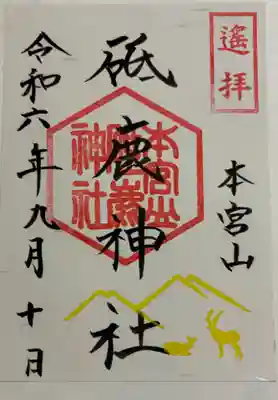 遙拝
本宮山
砥鹿神社
本宮山
砥鹿
神社
令和六年九月十日